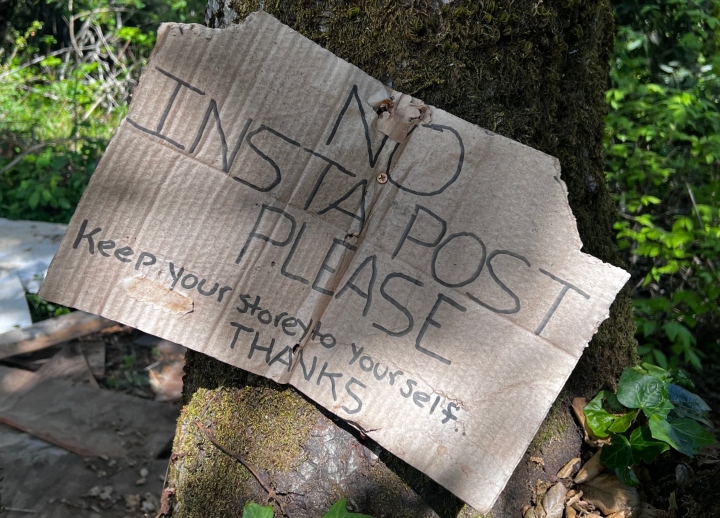 NO
INSTA POST
PLEASE
Keep your storey to yourself..
THANKS